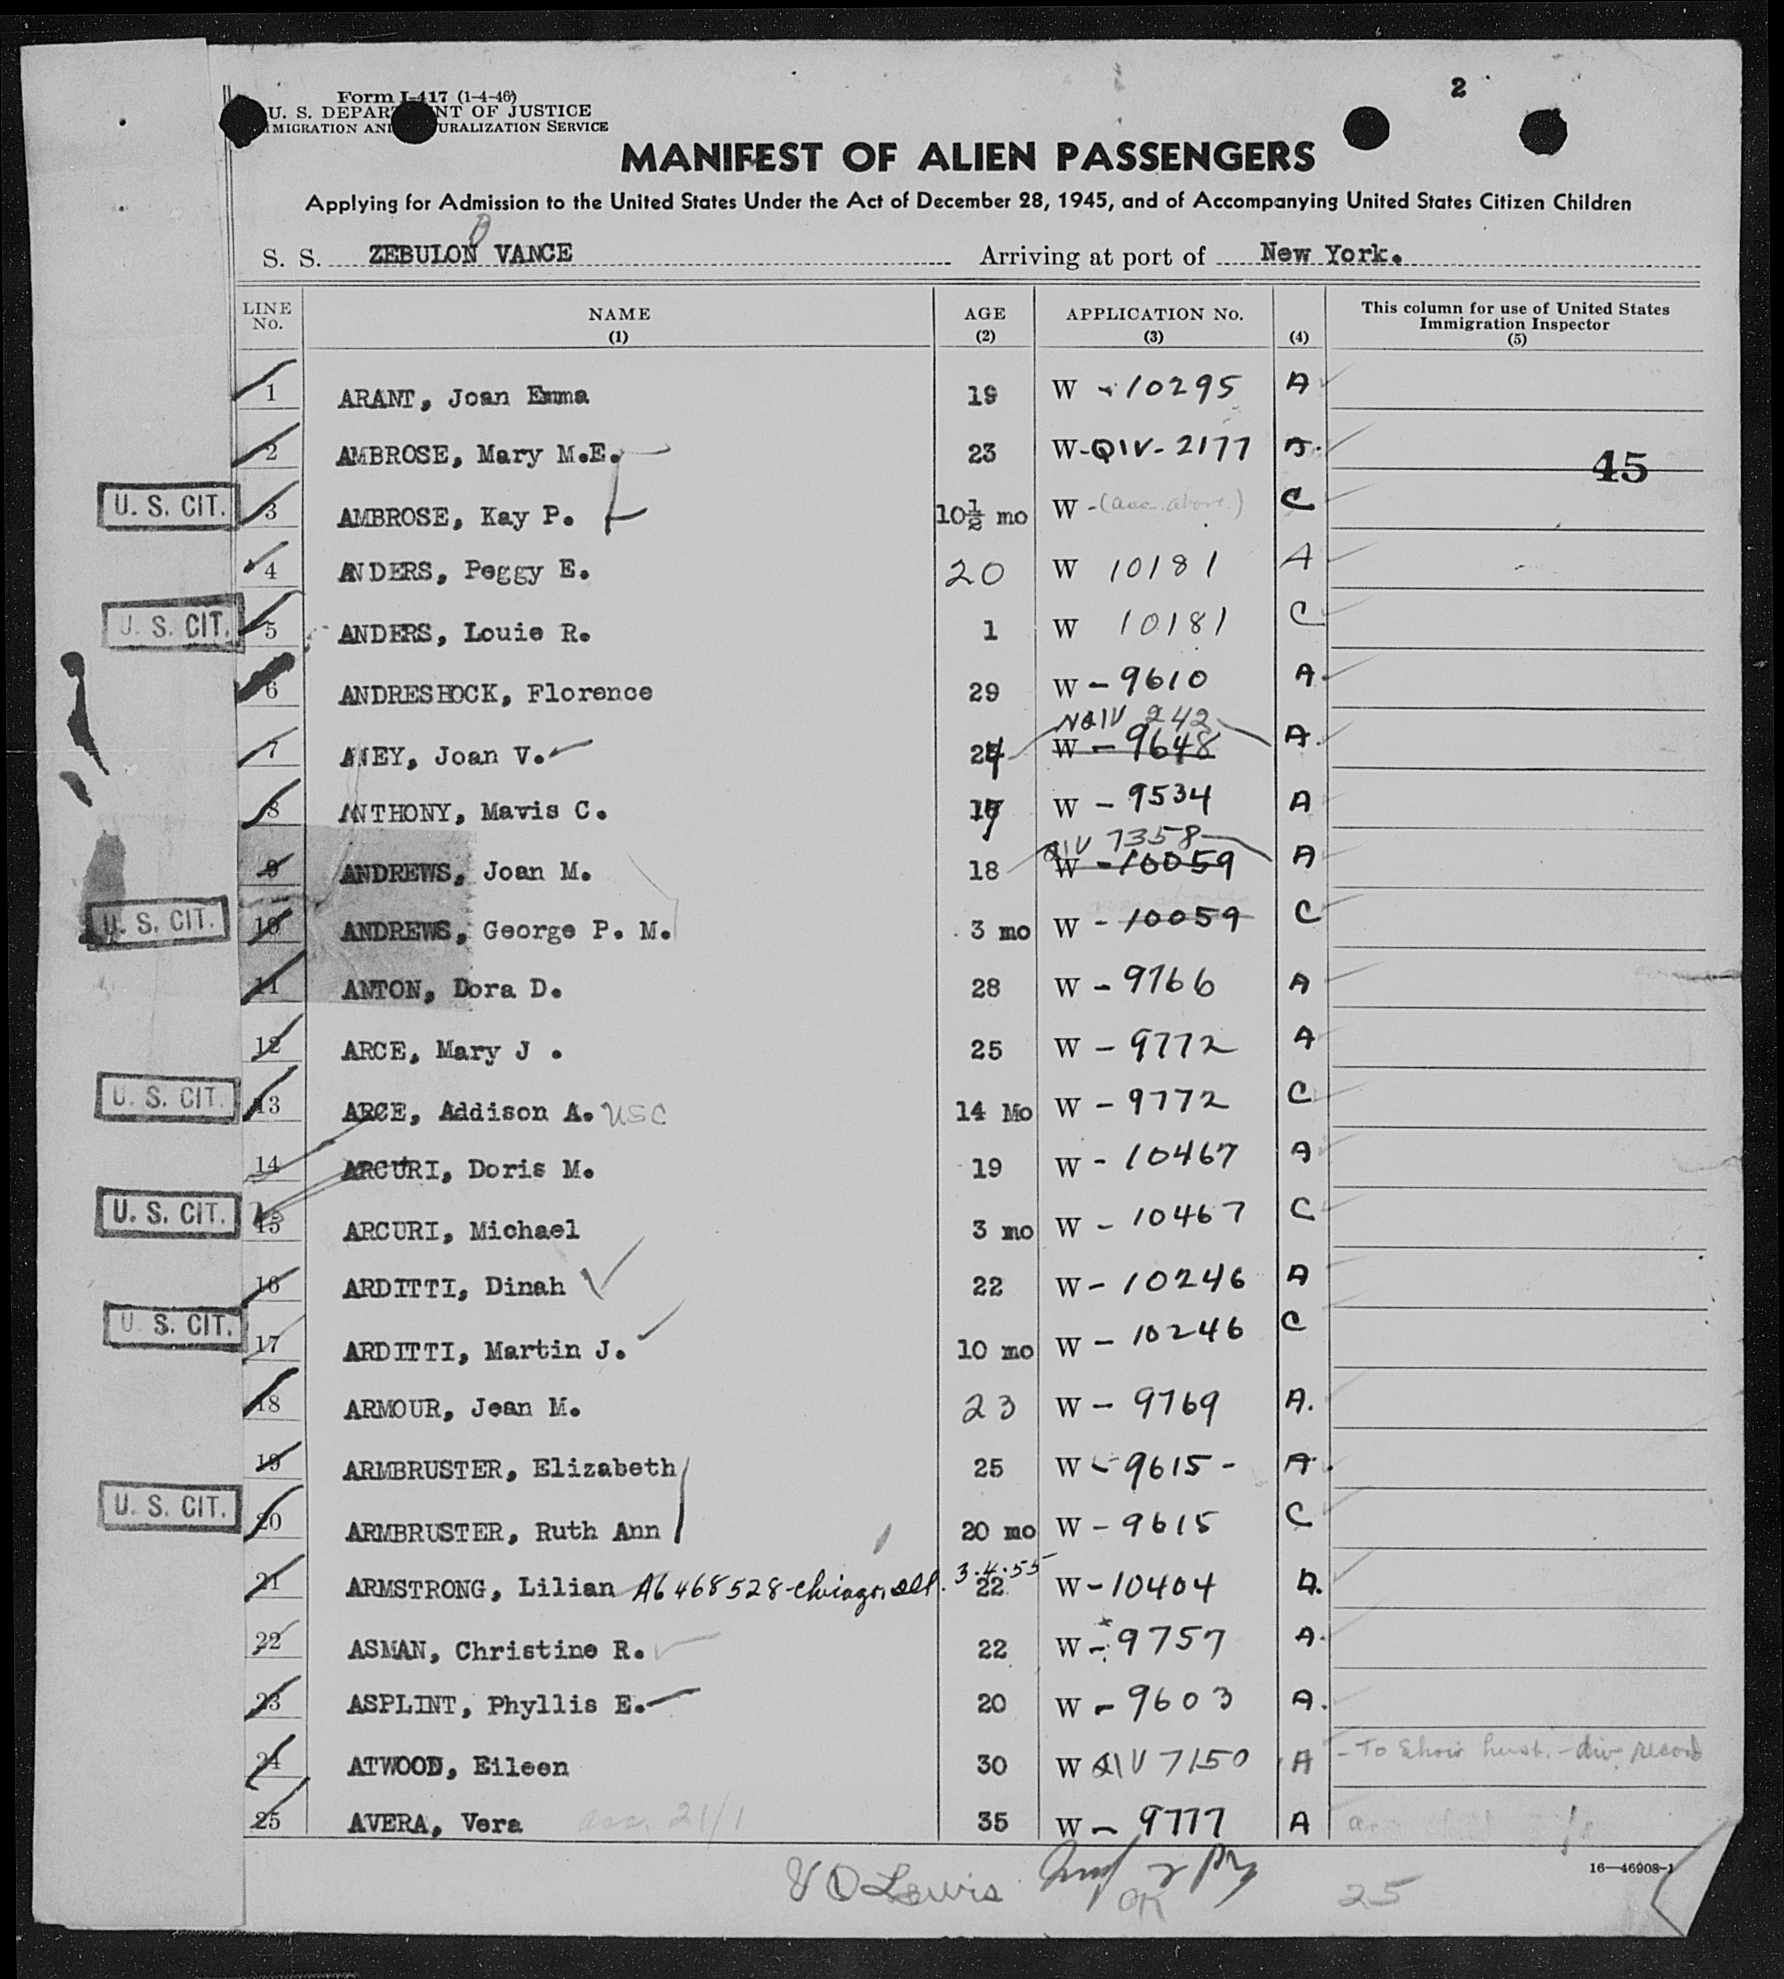 Form I-417 (1-4-46)
2
U. S. DEPAR NT OF JUSTICE
MIGRATION AN URALIZATION SERVICE
MANIFEST OF ALIEN PASSENGERS
Applying for Admission to the United States Under the Act of December 28, 1945, and of Accompanying United States Citizen Children
S. S. ZEBULON VANCE Arriving at port of New York.
LINE No. NAME (1) AGE (2) APPLICATION No. (3) (4) This column for use of United States Immigration Inspector (5)
1 ARANT, Joan Emma 19 W - 10295 A
2 AMBROSE, Mary M.E. 23 W-QIV-2177 A. 45
U. S. CIT. 3 AMBROSE, Kay P. 10½ mo W - (acc. above) C
4 ANDERS, Peggy E. 20 W 10181 A
U. S. CIT. 5 ANDERS, Louie R. 1 W 10181 C
6 ANDRESHOCK, Florence 29 W - 9610 A.
NQIV 242
7 ANEY, Joan V. 24 W - 9648 A.
8 ANTHONY, Mavis C. 17 W - 9534 A
QIV 7358
9 ANDREWS, Joan M. 18 W - 10059 A
U. S. CIT. 10 ANDREWS, George P. M. 3 mo W - 10059 C
11 ANTON, Dora D. 28 W - 9766 A
12 ARCE, Mary J . 25 W - 9772 A
U. S. CIT. 13 ARCE, Addison A. USC 14 Mo W - 9772 C
14 ARCURI, Doris M. 19 W - 10467 A
U. S. CIT. 15 ARCURI, Michael 3 mo W - 10467 C
16 ARDITTI, Dinah 22 W - 10246 A
U. S. CIT. 17 ARDITTI, Martin J. 10 mo W - 10246 C
18 ARMOUR, Jean M. 23 W - 9769 A.
19 ARMBRUSTER, Elizabeth 25 W - 9615 - A.
U. S. CIT. 20 ARMBRUSTER, Ruth Ann 20 mo W - 9615 C
3.4.55
21 ARMSTRONG, Lilian A6468528-Chicago, 22 W - 10404 A.
22 ASMAN, Christine R. 22 W - 9757 A.
23 ASPLINT, Phyllis E. 20 W - 9603 A.
24 ATWOOD, Eileen 30 W QIV 7150 A - To show husb. - div. record
25 AVERA, Vera 21/1 35 W - 9777 A
16—46908-1
Lewis OK 25